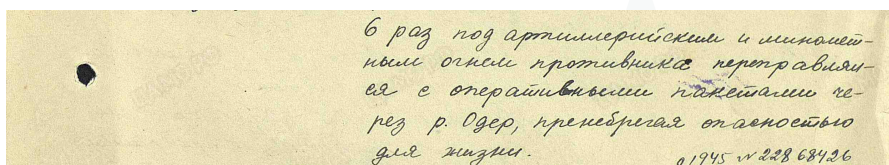 6 раз под артиллерийским и миномет-
ным огнем противника переправлял-
ся с оперативными пакетами че-
рез р. Одер, пренебрегая опасностью
для жизни.
1945 № 22868426